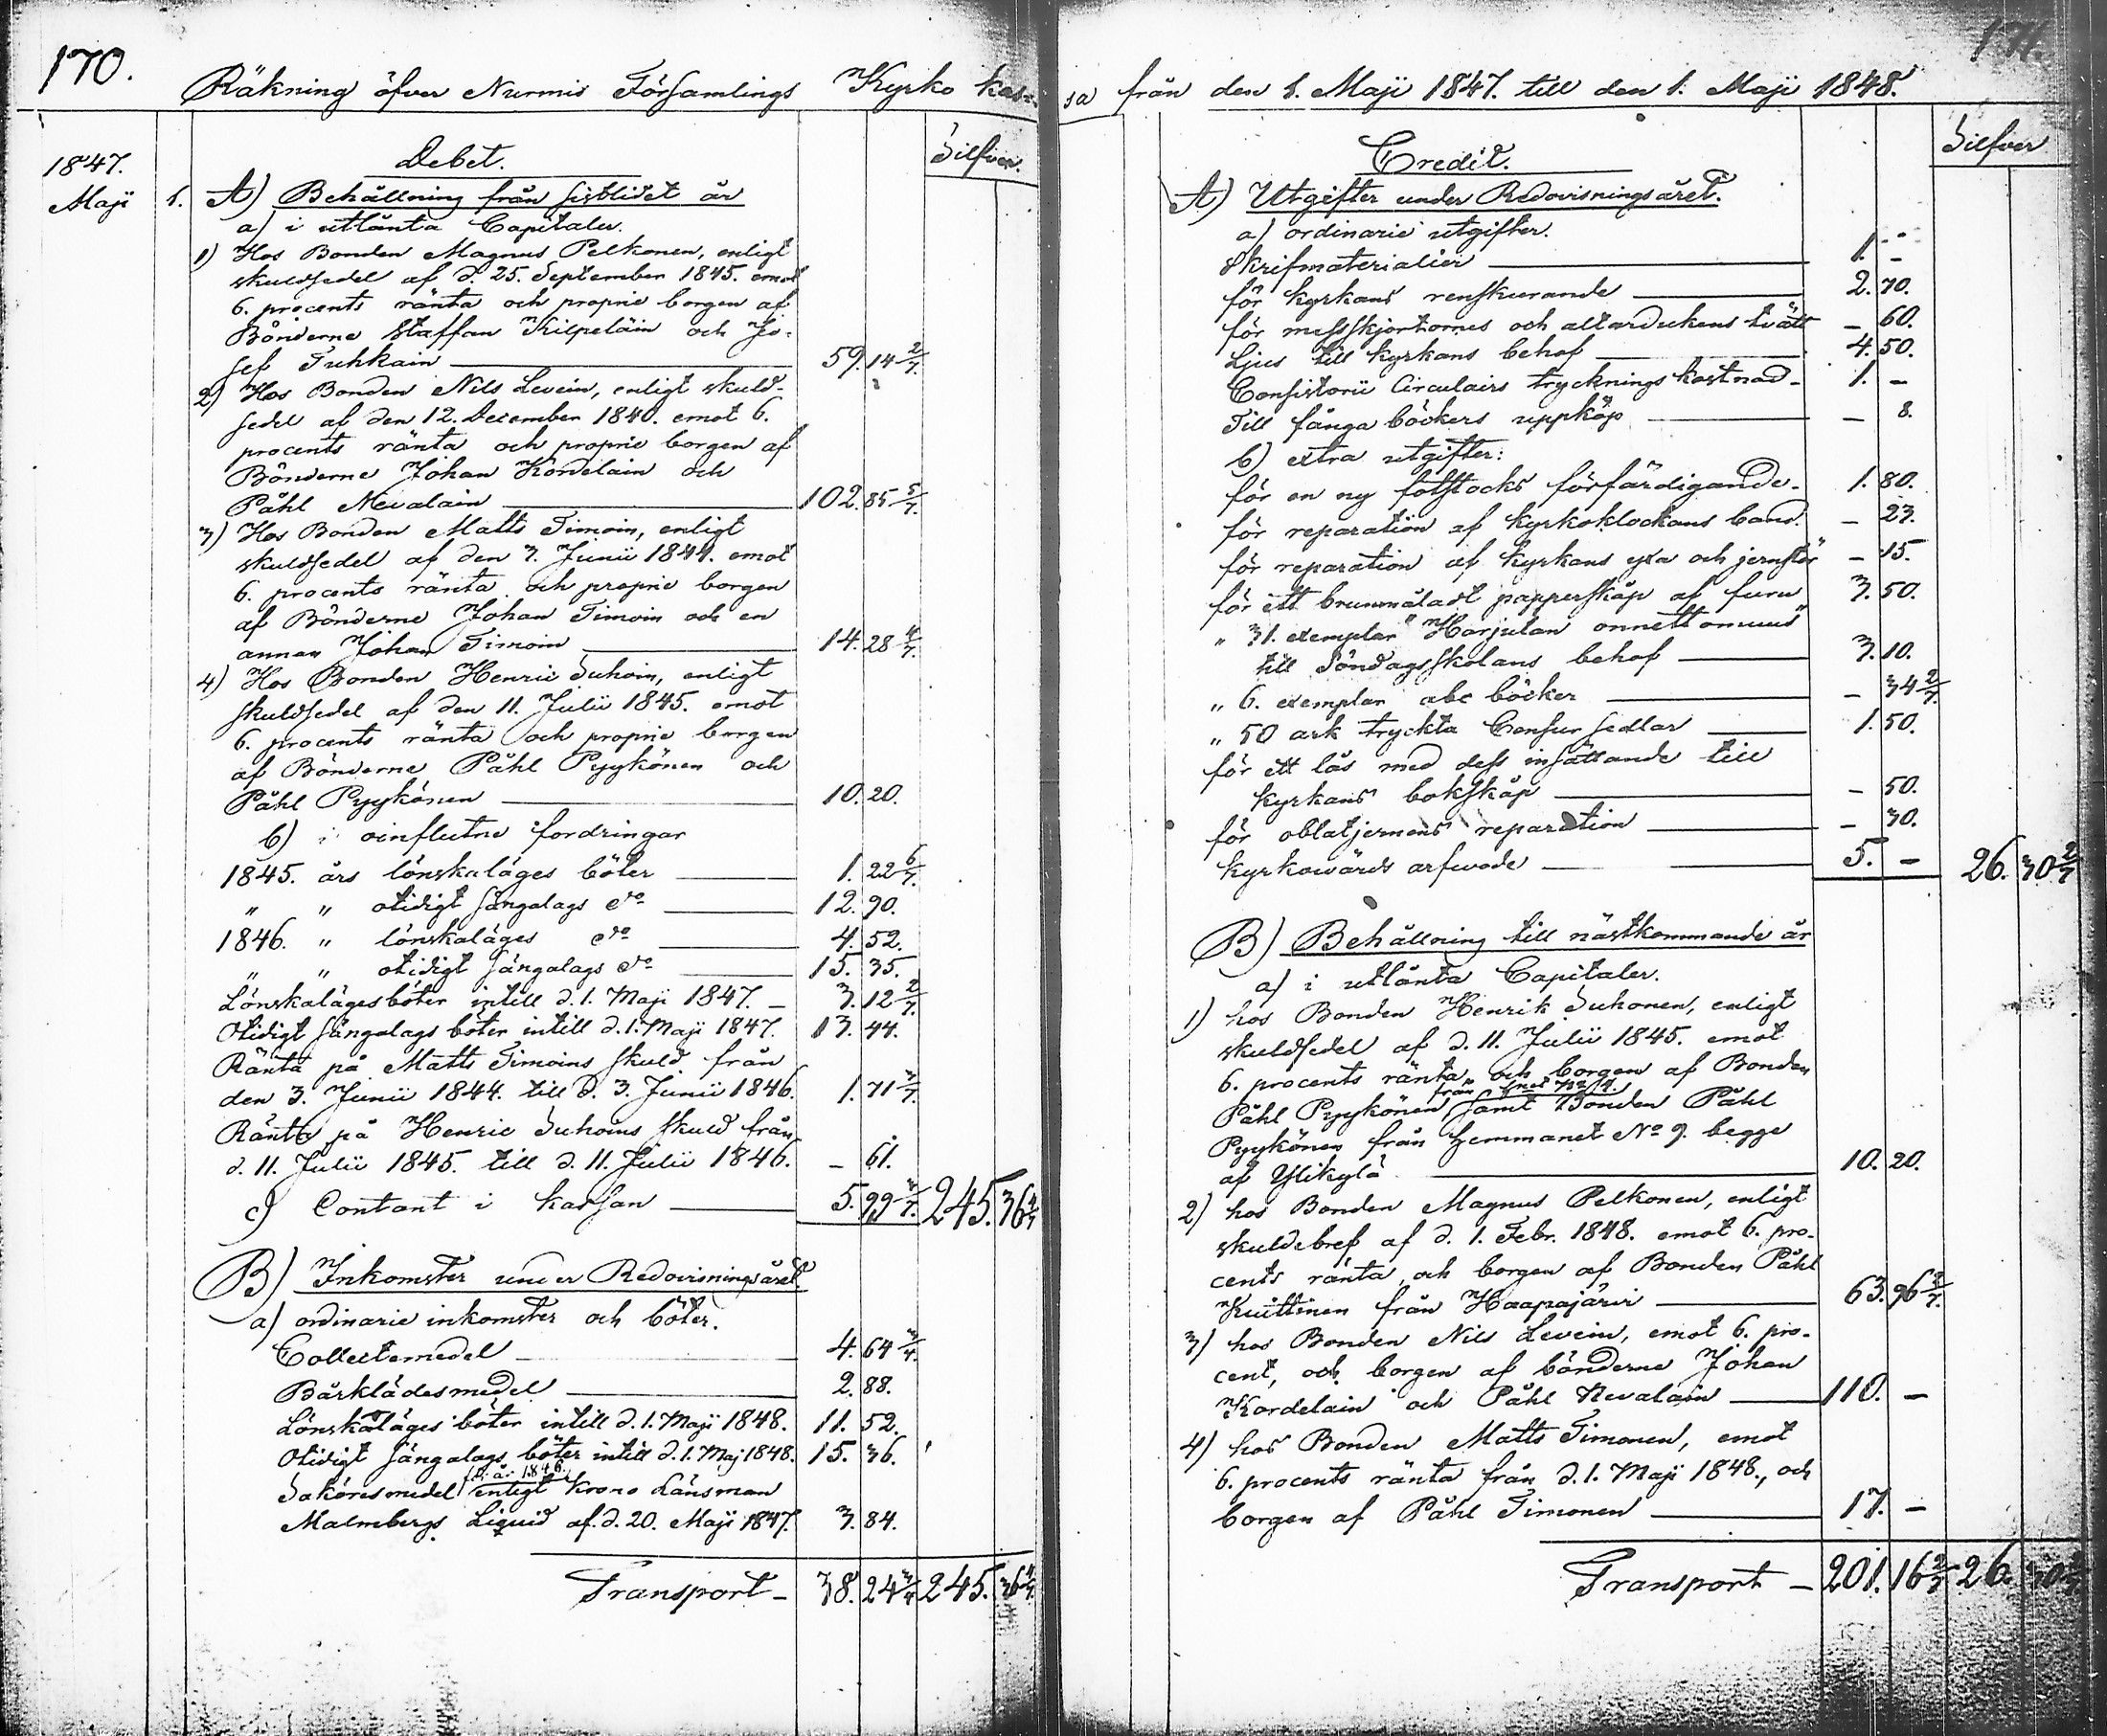 170.
Räkning öfver Nurmis Församlings Kyrko kas=
Debet.
Silfver.
1847.
Maji 1. A) Behållning från sistlidet år
a) i utlånta Capitaler.
1) Hos Bonden Magnus Pelkonen, enligt
skuldsedel af d. 25. September 1845. emot
6. procents ränta och proprie borgen af
Bönderne Staffan Kilpeläin och Jo-
sef Tuhkain 59. 14 2/7.
2) Hos Bonden Nils Levein, enligt skuld-
sedel af den 12. December 1840. emot 6.
procents ränta och proprie borgen af
Bönderne Johan Kordelain och
Påhl Nevalain 102. 85 5/7.
3) Hos Bonden Matts Timoin, enligt
skuldsedel af den 3. Junii 1844. emot
6. procents ränta och proprie borgen
af Bönderne Johan Timoin och en
annan Johan Timoin 14. 28 4/7.
4) Hos Bonden Henric Suhoin, enligt
skuldsedel af den 11. Julii 1845. emot
6. procents ränta och proprie borgen
af Bönderne Påhl Pyykönen och
Påhl Pyykönen 10. 20.
b) i oinflutne fordringar
1845. års lönskaläges böter 1. 22 6/7.
" " otidigt sängalags do 12. 90.
1846. " lönskaläges do 4. 52.
" " otidigt sängalags do 15. 35.
Lönskalägesböter intill d. 1. Maji 1847. 3. 12 2/7.
Otidigt sängalags böter intill d. 1. Maji 1847. 13. 44.
Ränta på Matts Timoins skuld från
den 3. Junii 1844. till d. 3. Junii 1846. 1. 71 3/7.
Ränta på Henric Suhoins skuld från
d. 11. Julii 1845. till d. 11. Julii 1846. – 61.
c) Contant i kassan 5. 99 3/7. 245. 36 4/7
B) Inkomster under Redovisningsåret
a) ordinarie inkomster och böter.
Collectemedel 4. 64 3/4.
Bårklädesmedel 2. 88.
Lönskaläges böter intill d. 1. Maji 1848. 11. 52.
Otidigt sängalags böter intill d. 1. Maj 1848. 15. 36.
för år 1846.
Saköresmedel enligt Krono Länsman
Malmbergs Liquid af d. 20. Maji 1847. 3. 84.
Transport – 38. 24 3/4 245. 36 4/7.
171.
sa från den 1. Maji 1847. till den 1. Maji 1848.
Credit.
Silfver
A) Utgifter under Redovisningsåret.
a) ordinarie utgifter.
Skrifmaterialier 1. –
för kyrkans renskurande 2. 70.
för messskjortornes och altardukens tvätt – 60.
Ljus till kyrkans behof 4. 50.
Consistorii Circulairs tryckningskostnad – 1. –
Till fånga böckers uppköp – 8.
b) extra utgifter:
för en ny fotstocks förfärdigande – 1. 80.
för reparation af kyrkoklockans band. – 23.
för reparation af kyrkans yxa och jernstör – 15.
för ett brunmåladt papperskåp af furu 3. 50.
" 31. exemplar "Harjulan onnettomuus"
till Söndagsskolans behof 3. 10.
" 6. exemplar abc böcker – 34 2/7
" 50 ark tryckta Censur sedlar 1. 50.
för ett lås med dess insättande till
kyrkans bokskåp – 50.
för oblatjernens reparation – 30.
Kyrkowärds arfwode 5. – 26. 30 2/7
B) Behållning till nästkommande år
a) i utlånta Capitaler.
1) hos Bonden Henrik Suhonen, enligt
skuldsedel af d. 11. Julii 1845. emot
6. procents ränta och borgen af Bonden
från
Påhl Pyykönen samt Bonden Påhl
Pyykönen från hemmanet No 9. begge
af Ylikylä 10. 20.
2) hos Bonden Magnus Pelkonen, enligt
skuldebref af d. 1. Febr. 1848. emot 6. pro-
cents ränta, och borgen af Bonden Påhl
Kuittinen från Haapajärvi 63. 96 2/7.
3) hos Bonden Nils Levein, emot 6. pro-
cent, och borgen af bönderne Johan
Kordelain och Påhl Nevalain 110. –
4) hos Bonden Matts Timonen, emot
6. procents ränta från d. 1. Maji 1848., och
borgen af Påhl Timonen 17. –
Transport – 201. 16 2/7 26. 30 2/7